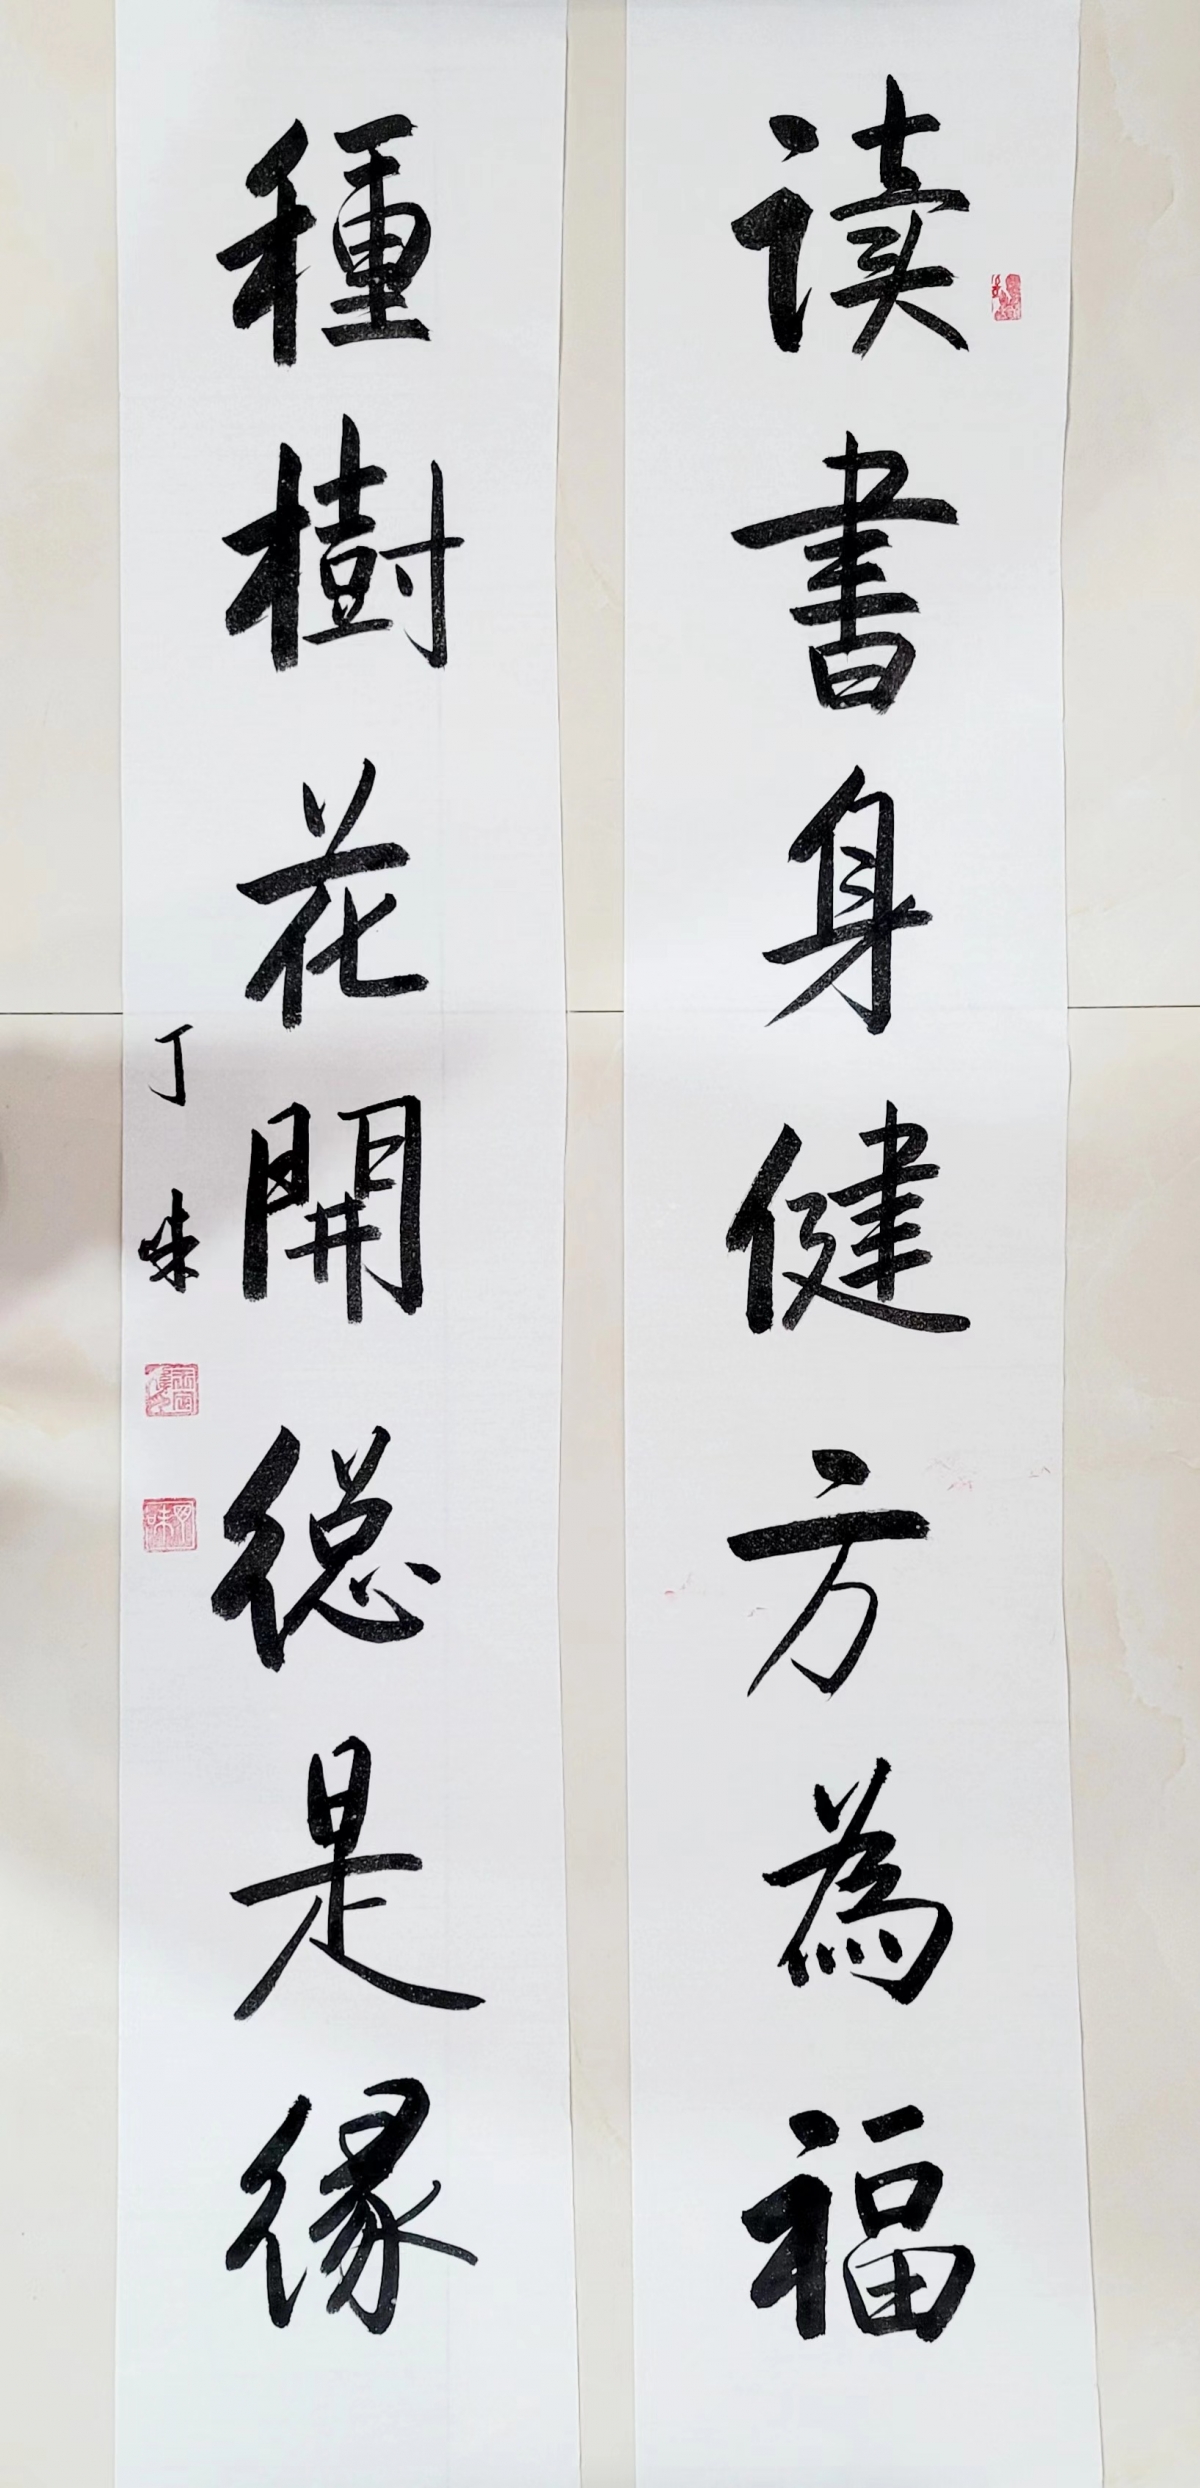 读書身健方為福
種樹花開總是緣
丁味